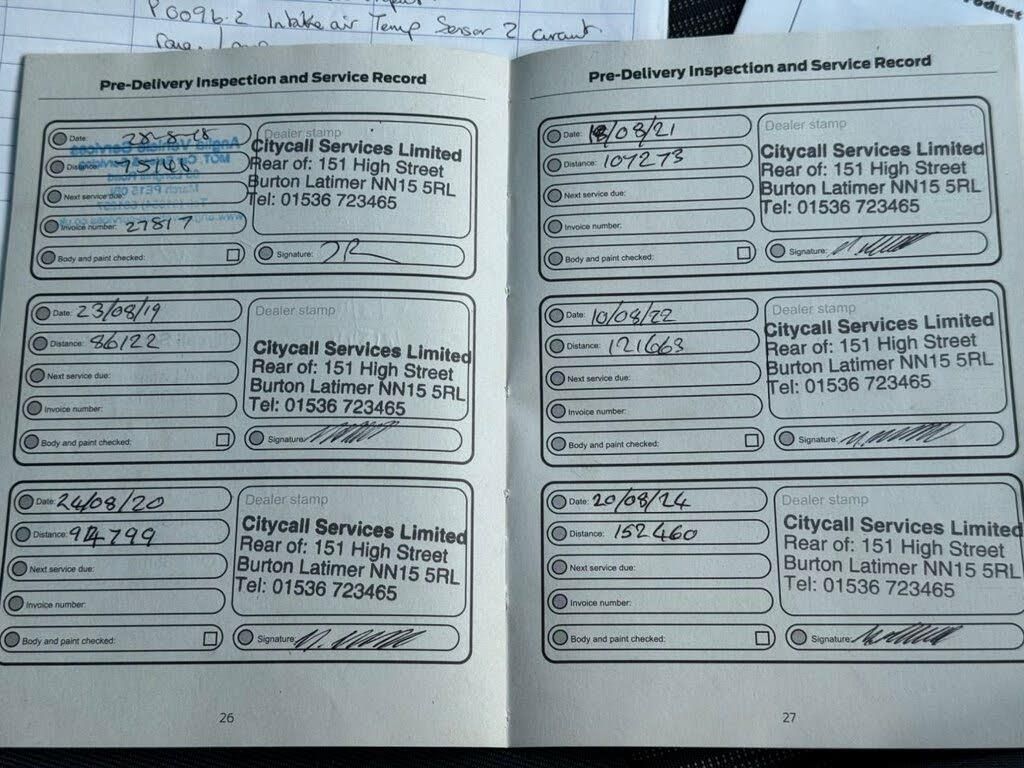 P0096-2 Intake air Temp Sensor 2 circuit
Product
Pre-Delivery Inspection and Service Record
Date: 28-8-18
Distance:
Next service due:
Invoice number: 27817
Body and paint checked:
Dealer stamp
Citycall Services Limited
Rear of: 151 High Street
Burton Latimer NN15 5RL
Tel: 01536 723465
Signature: JR
Date: 23/08/19
Distance: 86122
Next service due:
Invoice number:
Body and paint checked:
Dealer stamp
Citycall Services Limited
Rear of: 151 High Street
Burton Latimer NN15 5RL
Tel: 01536 723465
Signature:
Date: 24/08/20
Distance: 94799
Next service due:
Invoice number:
Body and paint checked:
Dealer stamp
Citycall Services Limited
Rear of: 151 High Street
Burton Latimer NN15 5RL
Tel: 01536 723465
Signature:
26
Pre-Delivery Inspection and Service Record
Date: 18/08/21
Distance: 107273
Next service due:
Invoice number:
Body and paint checked:
Dealer stamp
Citycall Services Limited
Rear of: 151 High Street
Burton Latimer NN15 5RL
Tel: 01536 723465
Signature:
Date: 10/08/22
Distance: 121663
Next service due:
Invoice number:
Body and paint checked:
Dealer stamp
Citycall Services Limited
Rear of: 151 High Street
Burton Latimer NN15 5RL
Tel: 01536 723465
Signature:
Date: 20/08/24
Distance: 152460
Next service due:
Invoice number:
Body and paint checked:
Dealer stamp
Citycall Services Limited
Rear of: 151 High Street
Burton Latimer NN15 5RL
Tel: 01536 723465
Signature:
27